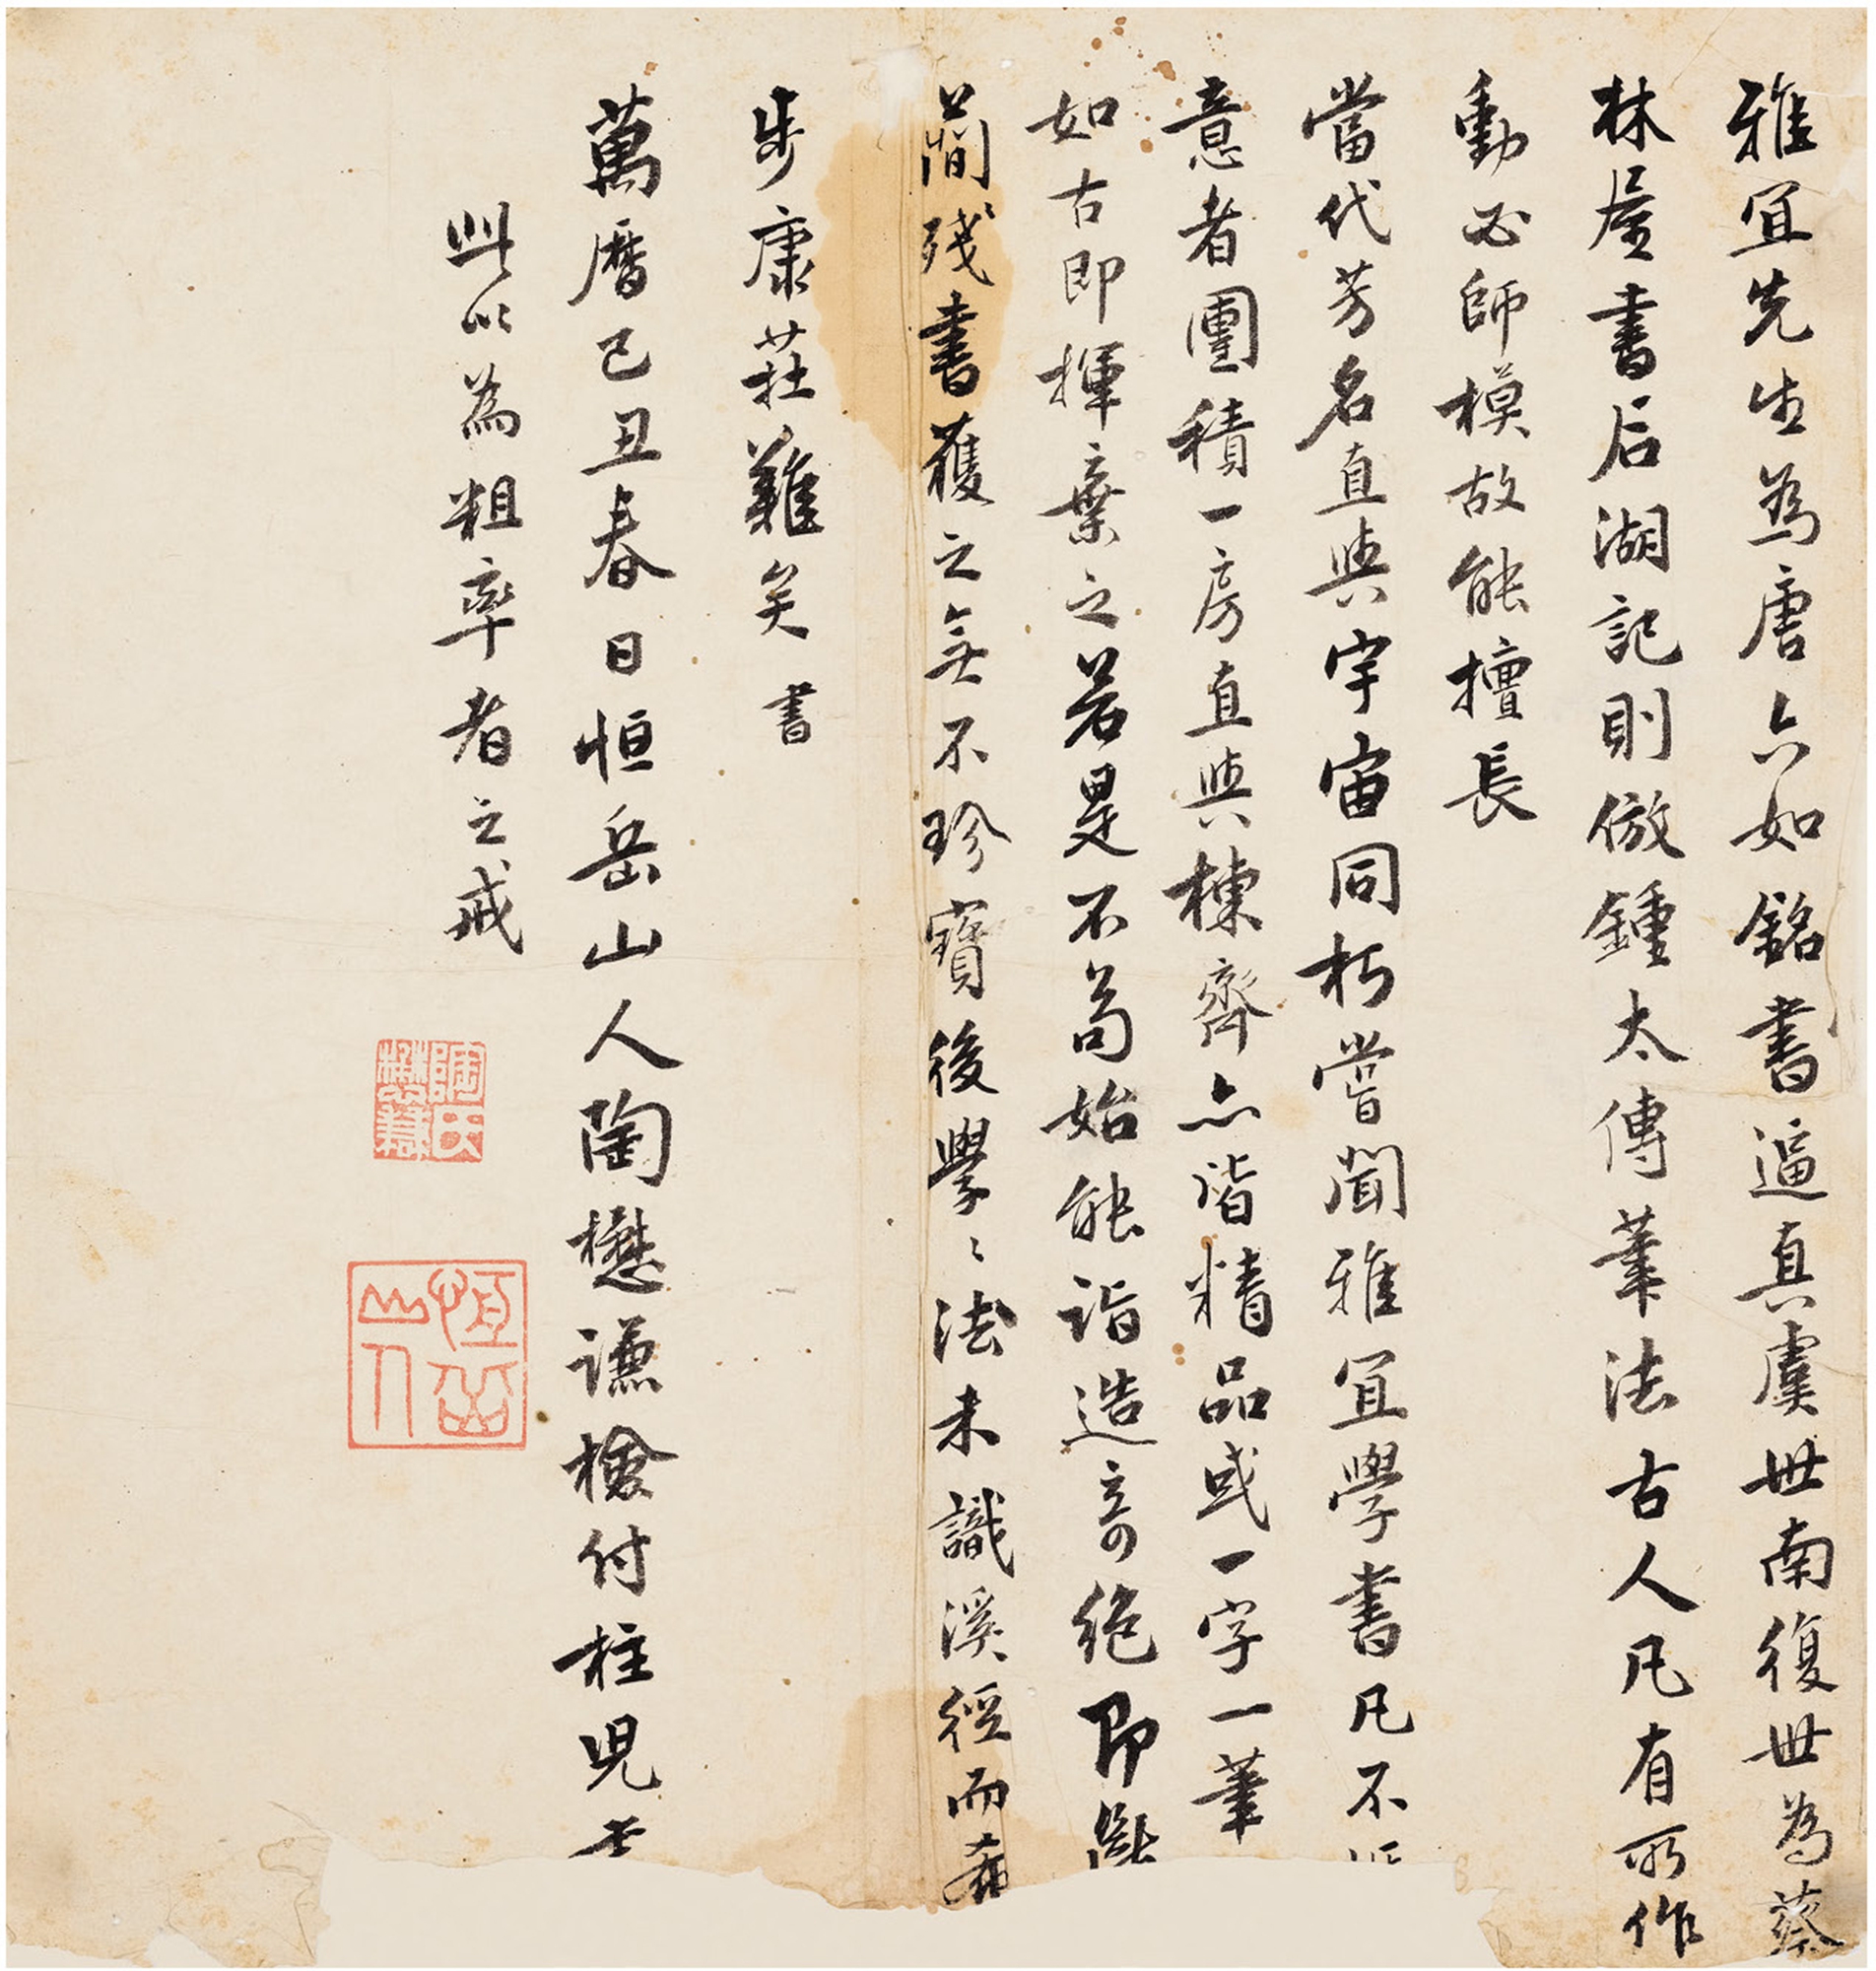 雅宜先生為唐六如銘書逼真虞世南復世為蔡
林屋書后湖記則倣鍾太傅筆法古人凡有所作
動必師模故能擅長
當代芳名直與宇宙同朽嘗聞雅宜學書凡不
意者團積一房直與棟齊亦皆精品或一字一筆
如古即揮棄之若是不苟始能詣造奇絕即斷
簡殘書獲之無不珍寶後學〻法未識溪徑而希
步康莊難矣 書
萬曆己丑春日恒岳山人陶懋謙檢付柱兒
此以為粗率者之戒
陶氏懋謙
恒岳山人